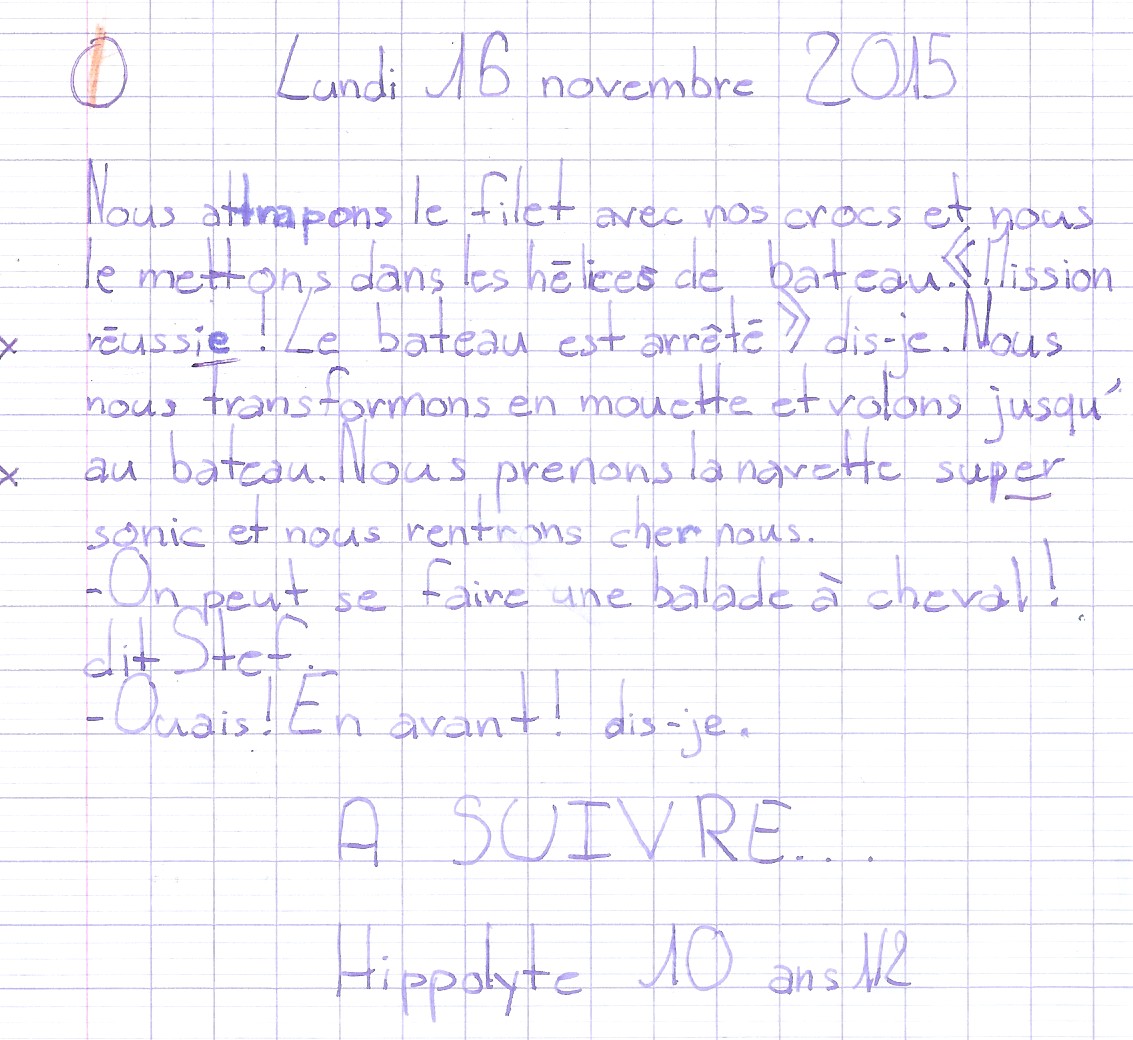 ① Lundi 16 novembre 2015
Nous attrapons le filet avec nos crocs et nous
le mettons dans les hélices de bateau. « Mission
x réussie ! Le bateau est arrêté » dis-je. Nous
nous transformons en mouette et volons jusqu'
x au bateau. Nous prenons la navette super
sonic et nous rentrons cher nous.
-On peut se faire une balade à cheval !
dit Stef.
-Ouais ! En avant ! dis-je.
A SUIVRE....
Hippolyte 10 ans 1/2